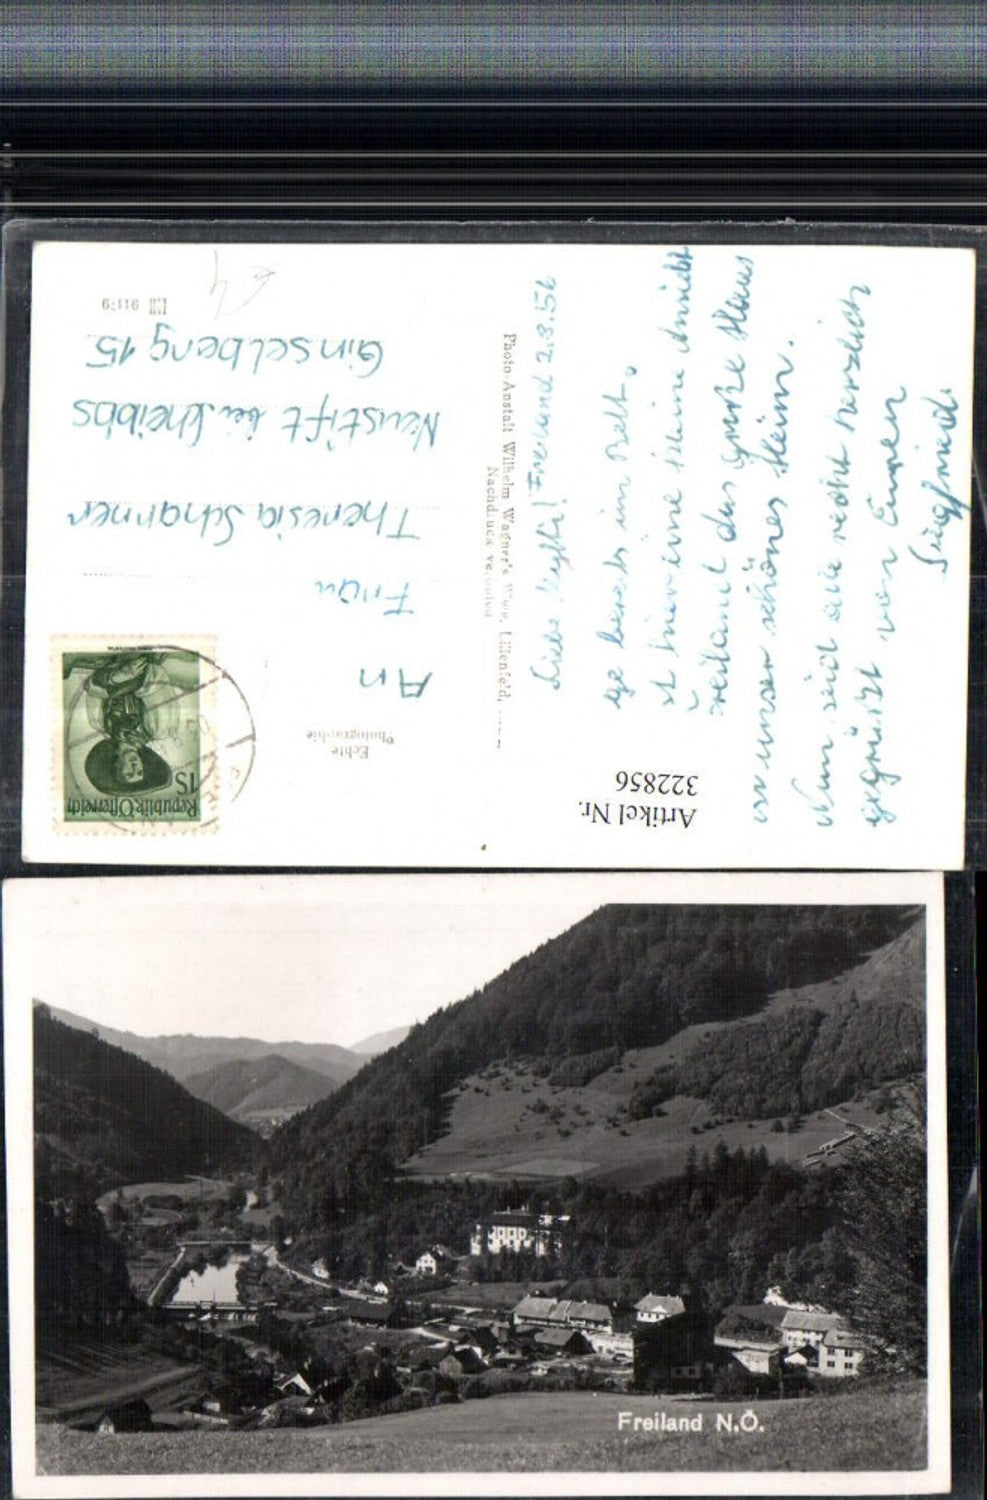 Artikel Nr.
322856
Echte
Photographie
Republik Österreich
1S
An
Frau
Theresia Scharner
Neustift bei Scheibbs
Ginselberg 15
91479
Photo-Anstalt Wilhelm Wagner's Wwe. Lilienfeld,
Nachdruck verboten
Liebe Freiland 2.8.56
bereits im Bett.
hier eine kleine Ansicht
Freiland das große Haus
unser schönes Heim.
Nun seid alle recht herzlich
gegrüßt von Euer
Siegfried.
Freiland N.Ö.